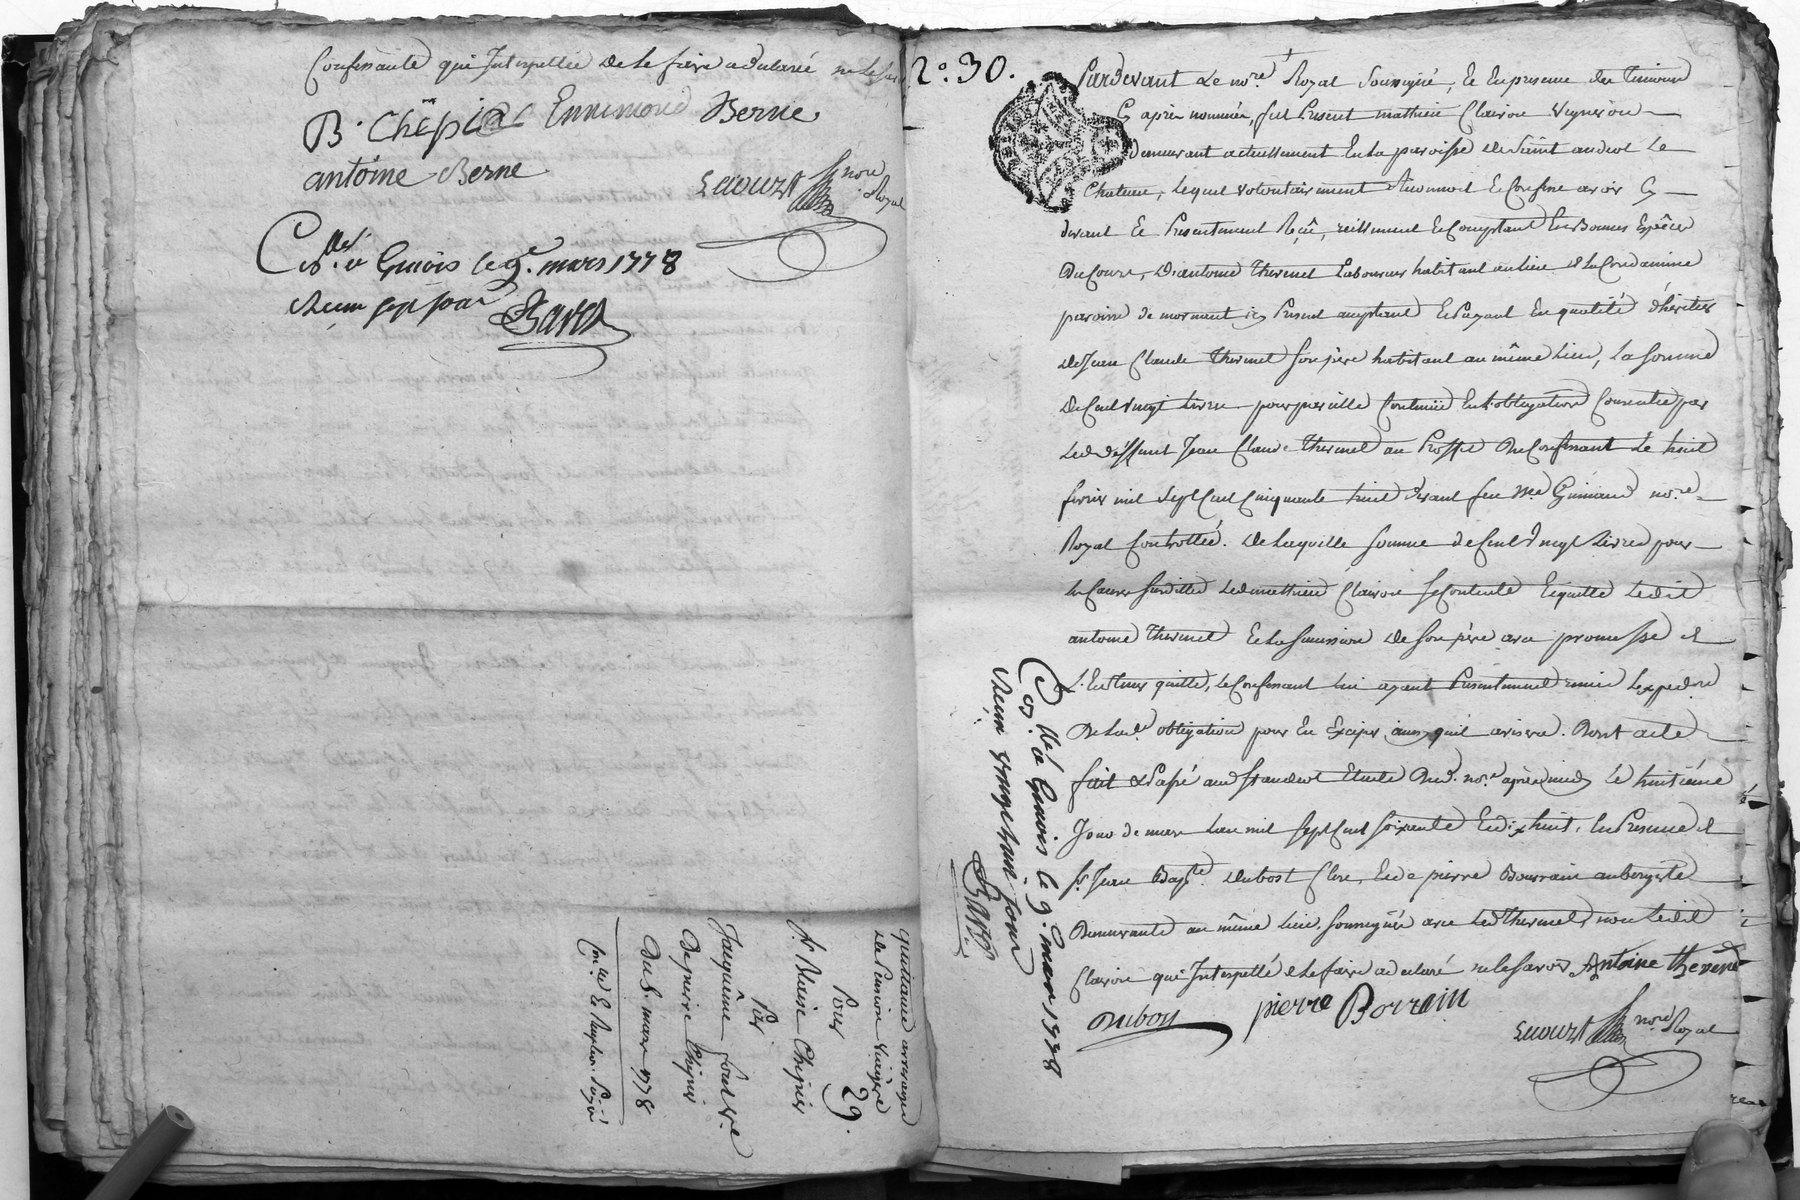 Confessante qui Interpellée de le faire a declaré ne le sca
B. Chëpia Ennimond Berne
antoine Berne
Lecourt nore Royal
Collé a Givors le 9e. mars 1778
Recu sept sous
Baret
quittance arrerages
de Pension viagère
29.
Pour
Sr. Blaise Chipier
Par
Jacquême fond Ve
de pierre Chipier
Du 8. mars 1778
Con. lles Et
No. 30.
Pardevant Le nore. Royal Soussigné, Et En presence des Temoins
Cy après nommés, fut Present matthieu Clairon Vigneron
Demeurant actuellement En La paroisse de Saint andeol Le
Chateau, Lequel volontairement Reconnoit Et Confesse avoir Cy
devant Et Presentement Reçû, réellement Et Comptant En Bonnes Espèces
Du Cours, D'antoine Thevenet Laboureur habitant au lieu de La Condamine
paroisse de mornant icy Present acceptant Et Payant En qualité d'heritier
De Jean Claude Thevenet Son père habitant au même Lieu, La Somme
De Cent vingt Livres pour pareille Contenüe En L'obligation Consentie par
Led. deffunt Jean Claude Thevenet au Proffit Du Confessant Le huit
fevrier mil Sept Cent Cinquante huit devant feu Me Guinand nore.
Royal Controllée. De Laquelle Somme de Cent Vingt Livres pour
les Causes Susdittes Led. matthieu Clairon Se Contente Et quitte Ledit
antoine Thevenet Et La Succession De Son père avec promesse de
L'En tenir quitte, Le Confessant Lui ayant Presentement remis L'expedon
De Lade. obligation pour En Exciper ainsy qu'il avisera. Dont acte
fait & Passé aud. St andeol Etude Dud. nore. après midy Le huitième
Jour de mars L'an mil Sept Cent Soixante Et dix huit. En Presence de
Sr. Jean Bapte. Dubost Clerc, Et de pierre Bourrain aubergiste
Demeurants au même Lieu, Soussignés avec Led. Thevenet, non Ledit
Clairon qui Interpellé de Le faire a declaré ne le Savoir Antoine thevenet
Dubost pierre Borrain
Lecourt nore Royal
Collé a Givors le 9. mars 1778
Recu vingt huit sous
Baret